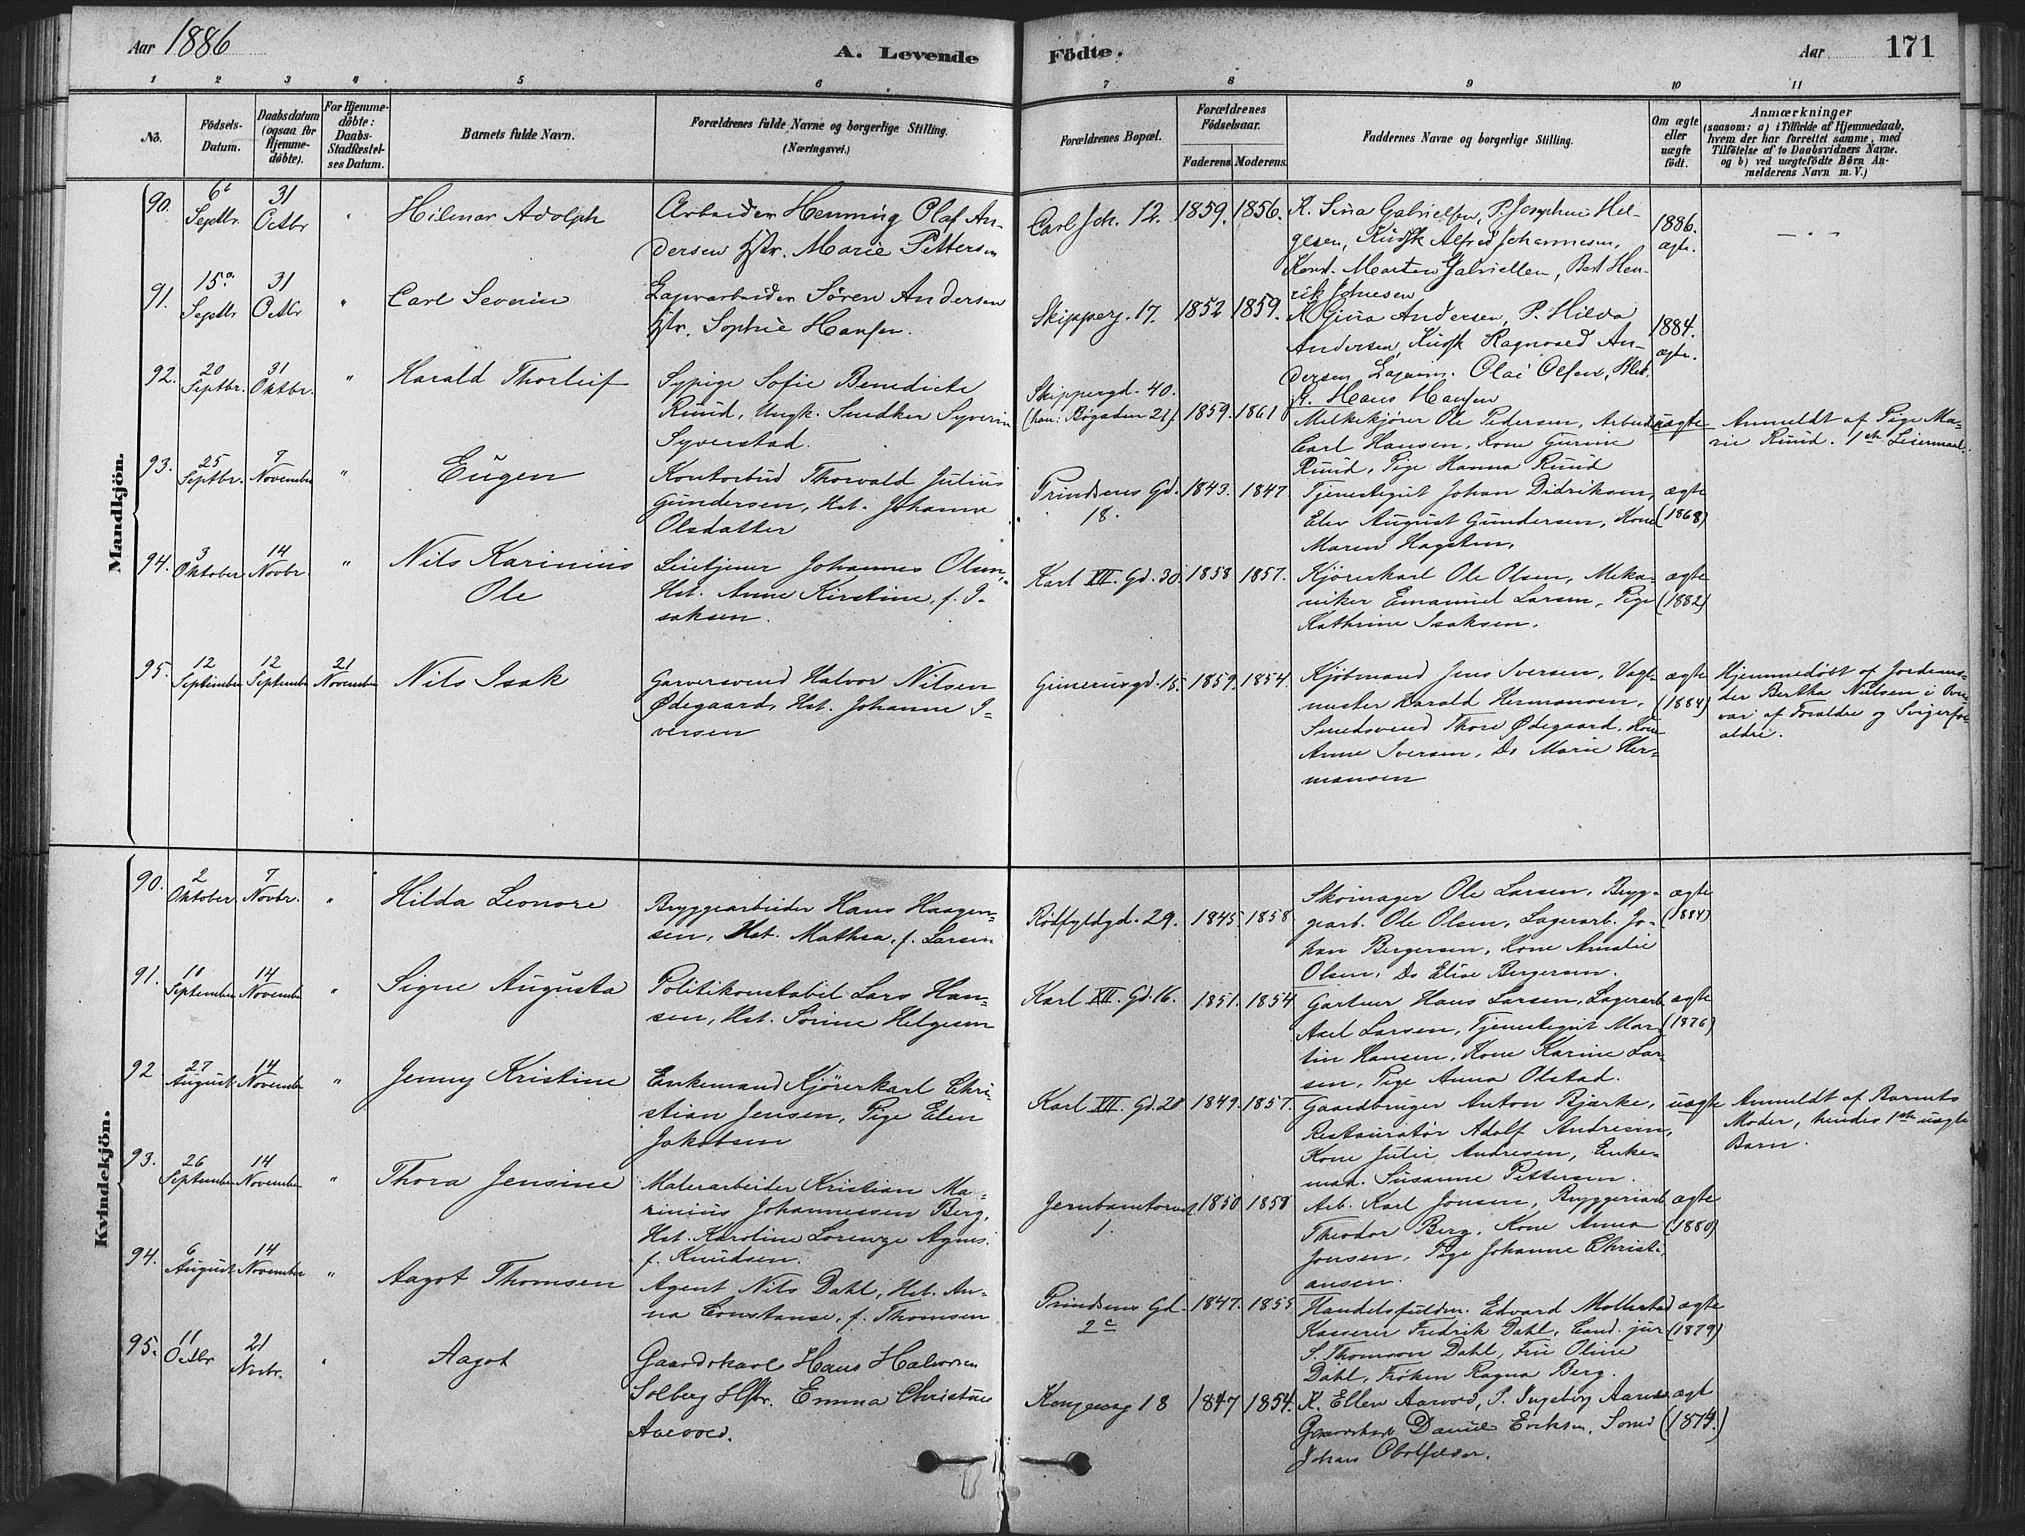 Aar 1886
A. Levende
Födte.
Aar
171
1 2 3 4 5 6 7 8 9 10 11
No.
Födsels-
Datum.
Daabsdatum
(ogsaa for
Hjemme-
döbte).
For Hjemme-
döbte:
Daabs-
Stadfæstel-
ses Datum.
Barnets fulde Navn.
Forældrenes fulde Navne og borgerlige Stilling.
(Næringsvei.)
Forældrenes Bopæl.
Forældrenes
Födselsaar.
Faderens.
Moderens.
Faddernes Navne og borgerlige Stilling.
Om ægte
eller
uægte
födt.
Anmærkninger
(saasom: a) i Tilfælde af Hjemmedaab,
hvem der har forrettet samme, med
Tilföielse af to Daabsvidners Navne.
og b) ved uægtefödte Börn An-
melderens Navn m. V.)
Mandkjön.
90.
6
Septbr.
31
Octbr
"
Hilmar Adolph
Arbeider Henning Olaf An-
dersen Hstr. Marie Pettersen
Carl Joh. 12.
1859.
1856.
K. Sina Gabrielsen, P. Josephine Hel-
gesen, Kudsk Alfred Johannesen,
Konst. Morten Gabrielsen,
1886.
ægte.
91.
15
Septbr
31
Octbr
"
Carl Severin
Lagerarbeider Søren Andersen
Hstr. Sophie Hansen.
Skipperg. 17.
1852
1859.
K. Gina Andersen, P. Hilda
Andersen, Kudsk Ragnvald An-
dersen, Olai Olsen,
Hans Hansen
1884.
ægte.
92.
20
Septbr.
31
Oktbr.
"
Harald Thorleif
Sypige Sofie Benedicte
Ruud, Ungk. Snedker Syverin
Syverstad.
Skippergd. 40.
(han: Bøgaden 21).
1859.
1861
Melkekjører Ole Pedersen, Arbeider
Carl Hansen, Kone Gurine
Ruud, Pige Hanna Ruud
uægte
Anmeldt af Pige Ma-
rie Ruud. 1ste Leiermaal.
93.
25
Septbr.
7
November
"
Eugen
Kontorbud Thorvald Julius
Gundersen, Hst. Johanne
Olsdatter
Prindsens Gd.
18.
1843.
1847
Tjenestegut Johan Didriksen,
Elev August Gundersen, Kone
Maren Hagsten,
ægte
(1868)
94.
3
Oktober
14
Novbr.
"
Nils Karinius
Ole
Leietjener Johannes Olsen,
Hst. Anne Kirstine, f. I-
saksen.
Karl XII. Gd. 30.
1858
1857.
Kjørerkarl Ole Olsen, Meka-
niker Emanuel Larsen, Pige
Kathrine Isaksen.
ægte
(1882)
95.
12
September
12
September
21
November
Nils Isak
Garversvend Halvor Nilsen
Ødegaard, Hst. Johanne I-
versen
Gunerusgd. 15.
1859.
1854.
Kjøbmand Jens Iversen, Vagt-
mester Harald Hermansen,
Smedsvend Thore Ødegaard, Kone
Anne Iversen, Do Marie Her-
mansen
ægte
(1884)
Hjemmedøbt af Jordemo-
der Bertha Nielsen i Over-
vær af Forældre og Svigerfor-
ældre.
Kvindekjön.
90.
2
Oktober
7
Novbr.
"
Hilda Leonore
Bryggearbeider Hans Haagen-
sen, Hst. Mathea, f. Larsen
Rødfyldgd. 29.
1845.
1858
Skomager Ole Larsen, Brygg-
gearb. Ole Olsen, Lagerarb. Jo-
han Bergersen, Kone Amalie
Olsen, Do Elise Bergersen.
ægte
(1884)
91.
18
September
14
November
"
Signe Augusta
Politikonstabel Lars Han-
sen, Hst. Sørine Helgesen
Karl XII. Gd. 16.
1851.
1854
Gartner Hans Larsen, Lagerarb.
Axel Larsen, Tjenestegut Mar-
tin Hansen, Kone Karine Lar-
sen, Pige Anna Olstad.
ægte
(1876)
92
27
August
14
November
"
Jenny Kristine
Enkemand Kjørerkarl Chri-
stian Jensen, Pige Elen
Jakobsen
Karl XII. Gd. 20
1849.
1857.
Gaardbruger Anton Bjærke,
Restauratør Adolf Andresen,
Kone Julie Andresen, Enke-
mad. Susanne Pettersen.
uægte
Anmeldt af Barnets
Moder, hendes 1ste uægte
Barn.
93.
26
September
14
November
"
Thora Jensine
Malerarbeider Kristian Ma-
rinius Johannessen Berg,
Hst. Karoline Lorenze Agnes.
f. Knudsen.
Jernbanetorvet
1.
1850
1859
Arb. Karl Jonsen, Bryggeriarb.
Theodor Berg, Kone Anna
Jonsen, Pige Johanne Christi-
ansen.
ægte
(1880)
94.
6
August
14
November
"
Aagot Thomsen
Agent Nils Dahl, Hst. An-
na Constanse, f. Thomsen
Prindsens Gd.
2c
1847.
1855
Handelsfuldm. Edvard Mollestad
Kasserer Fredrik Dahl, Cand. jur
S. Thomson Dahl, Fru Oline
Dahl, Frøken Ragna Berg.
ægte
(1879)
95.
11
Octbr
21
Novbr.
"
Aagot
Gaardskarl Hans Halvorsen
Solberg Hstr. Emma Christine
Aarvold.
Kongensg 18
1847
1854.
K. Ellen Aarvold, P. Ingeborg
Daniel Eriksen,
Johan
ægt
(1874.)